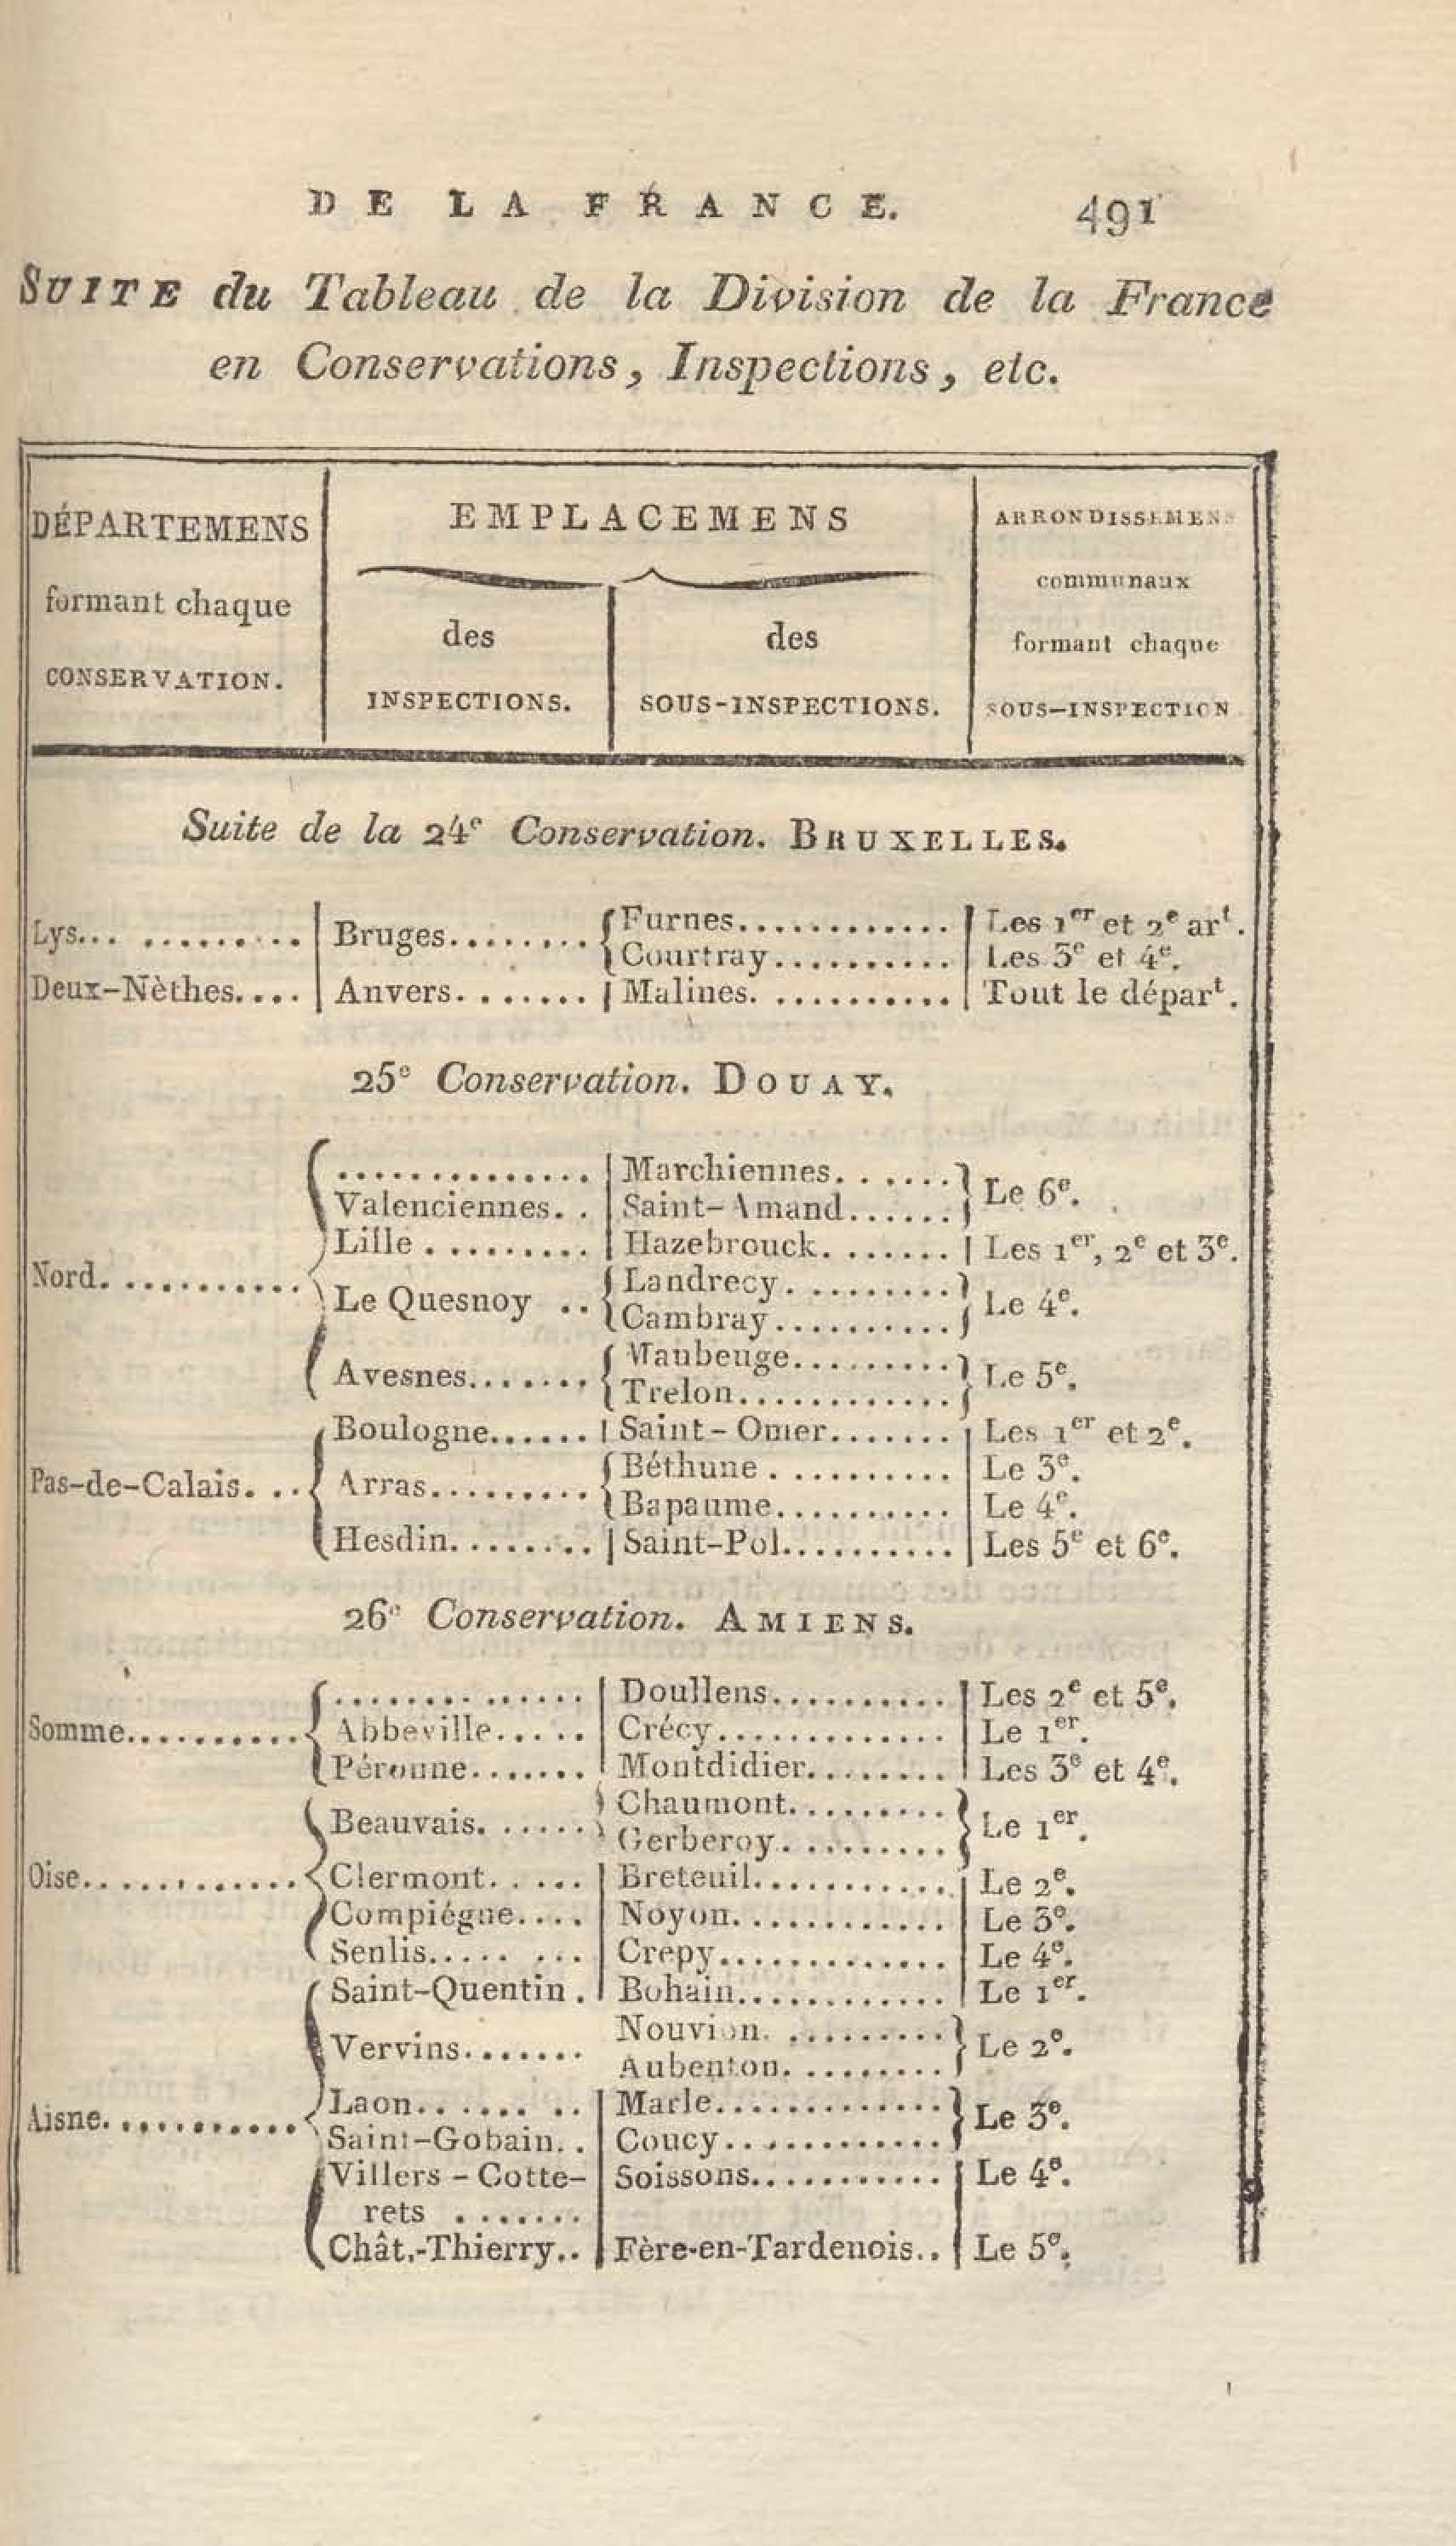 DE LA FRANCE. 491
SUITE du Tableau de la Division de la France
en Conservations, Inspections, etc.
DÉPARTEMENS
formant chaque
CONSERVATION.
EMPLACEMENS
des
INSPECTIONS.
des
SOUS-INSPECTIONS.
ARRONDISSEMENS
communaux
formant chaque
SOUS-INSPECTION
Suite de la 24e Conservation. BRUXELLES.
Lys............ | Bruges........ { Furnes............ | Les 1er et 2e art.
{ Courtray.......... | Les 3e et 4e.
Deux-Nèthes.... | Anvers........ | Malines........... | Tout le départ.
25e Conservation. DOUAY.
Nord........... { .............. | Marchiennes....... } Le 6e.
Valenciennes.. | Saint-Amand...... }
Lille.......... | Hazebrouck....... | Les 1er, 2e et 3e.
Le Quesnoy .. { Landrecy......... } Le 4e.
{ Cambray.......... }
Avesnes....... { Maubeuge......... } Le 5e.
{ Trelon............ }
Pas-de-Calais... { Boulogne...... | Saint-Omer....... | Les 1er et 2e.
Arras.......... { Béthune .......... | Le 3e.
{ Bapaume.......... | Le 4e.
Hesdin......... | Saint-Pol.......... | Les 5e et 6e.
26e Conservation. AMIENS.
Somme.......... { .............. | Doullens.......... | Les 2e et 5e.
Abbeville..... | Crécy............. | Le 1er.
Péronne....... | Montdidier........ | Les 3e et 4e.
Oise............ { Beauvais. ..... } Chaumont......... } Le 1er.
Gerberoy......... }
Clermont..... | Breteuil........... | Le 2e.
Compiégne.... | Noyon............ | Le 3e.
Senlis..... ... | Crepy............. | Le 4e.
Aisne........... { Saint-Quentin . | Bohain............ | Le 1er.
Vervins....... Nouvion. ......... } Le 2e.
Aubenton. ........ }
Laon...... .. | Marle............. } Le 3e.
Saint-Gobain.. | Coucy............ }
Villers-Cotte- | Soissons........... | Le 4e.
rets .......
Chât.-Thierry.. | Fère-en-Tardenois.. | Le 5e.